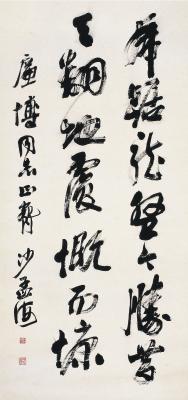 虎踞龙盘今勝昔
天翻地覆慨而慷
博同志正 沙孟海